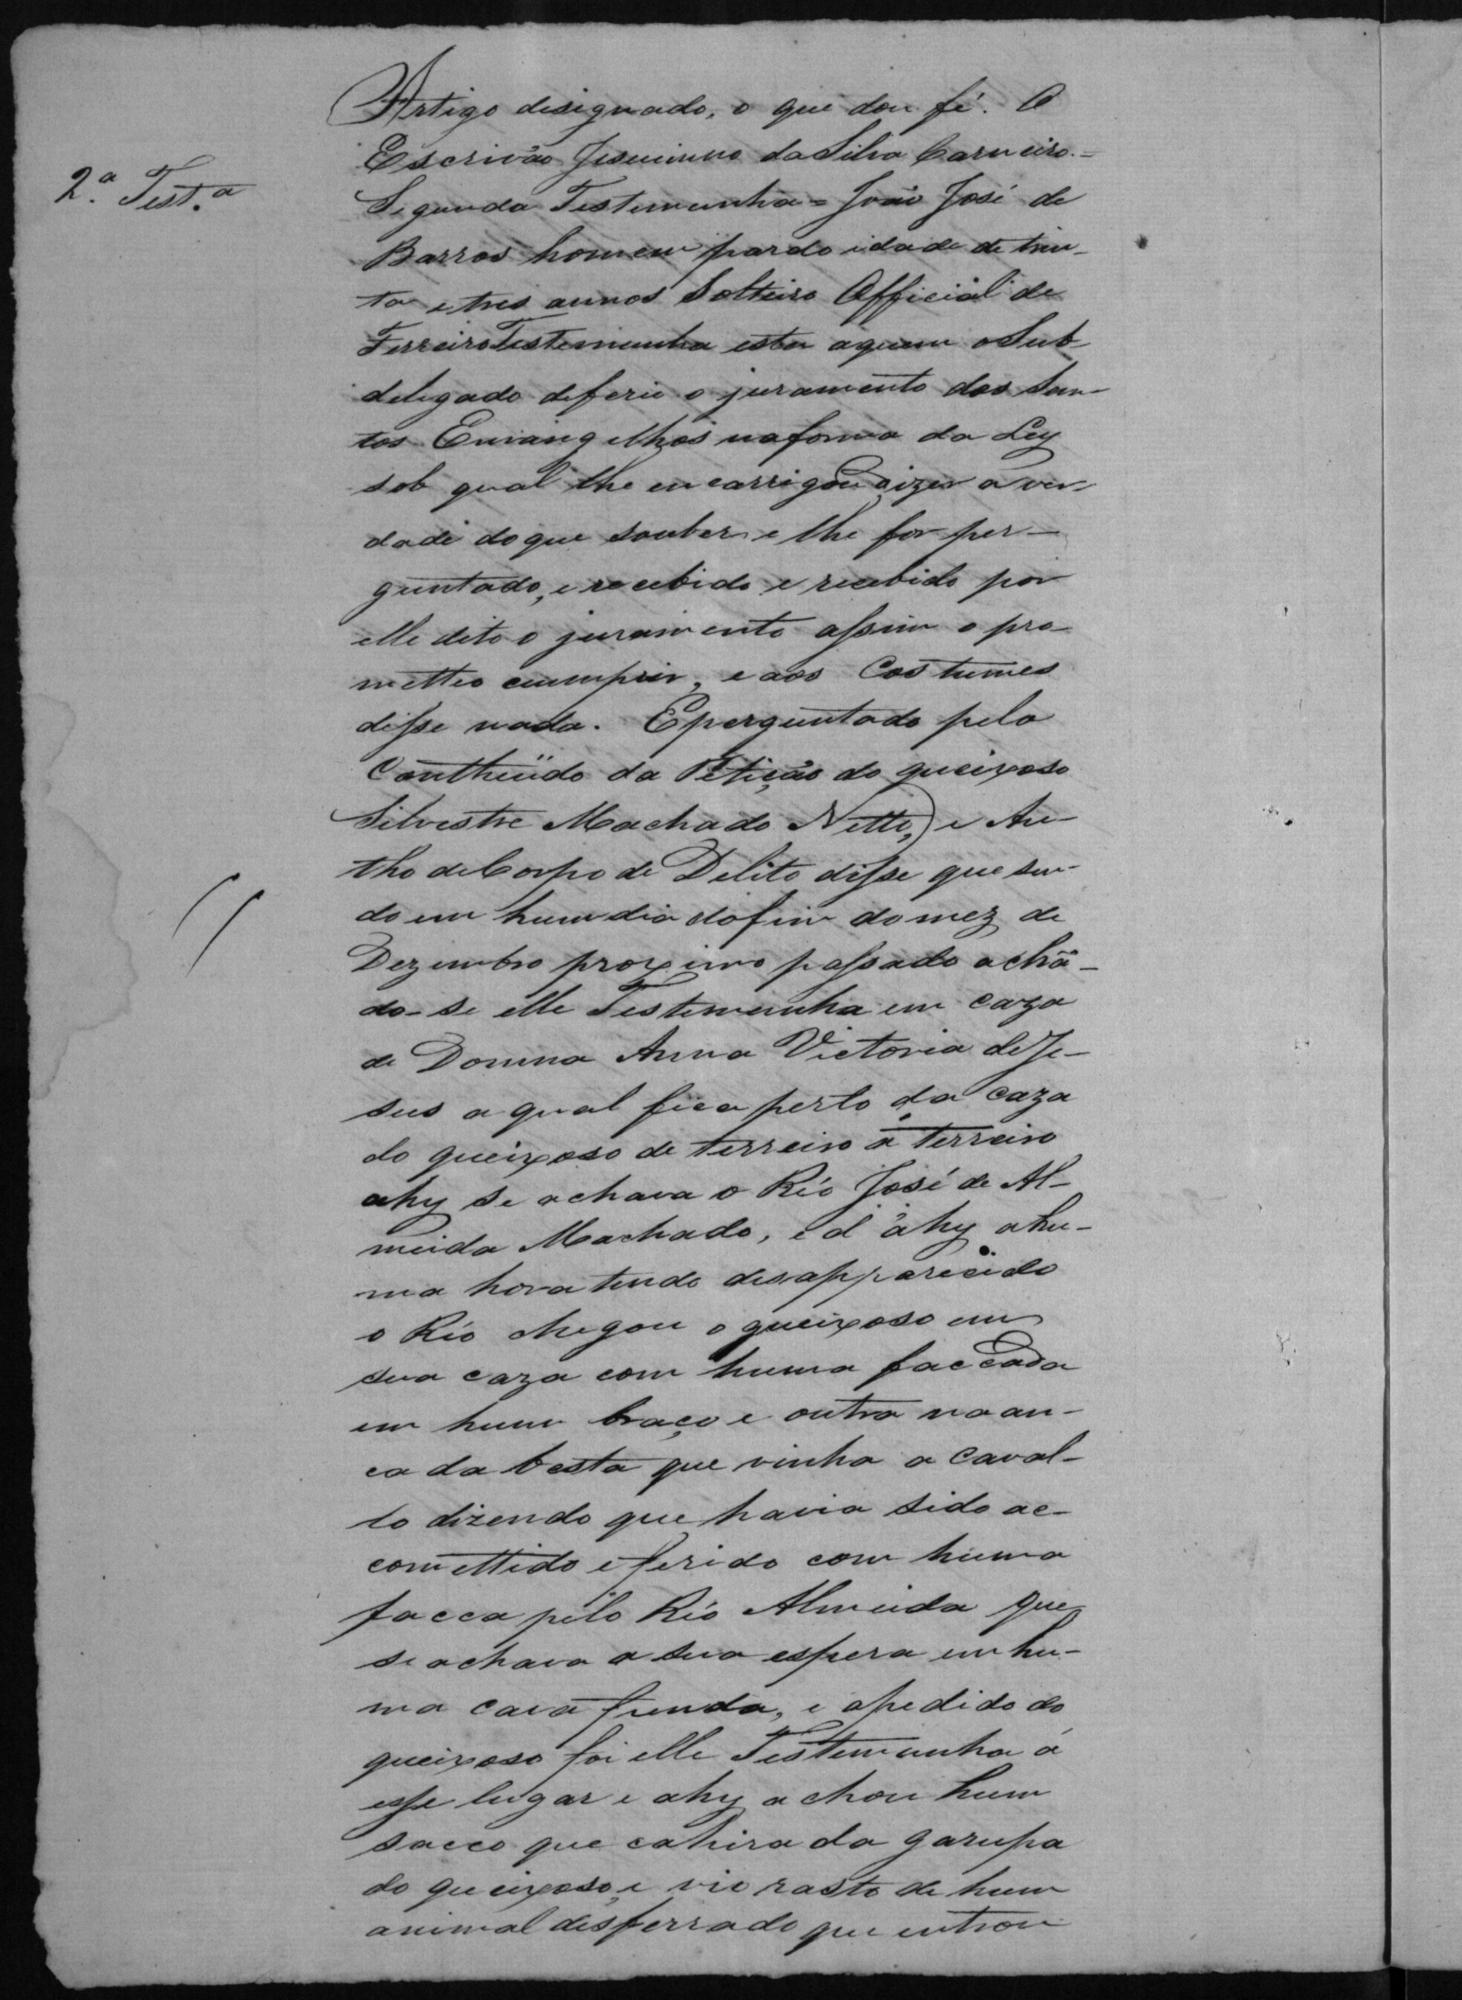 Artigo designado, o que dou fé. O
Escrivão Jesuinno da Silva Carneiro.=
2.ª Test.ª
Segunda Testemunha = João José de
Barros homem pardo idade de trin-
ta e tres annos Solteiro Official de
Ferreiro Testemunha esta aquem o Sub-
delegado deferio o juramento dos San-
tos Envangelhos na forma da Ley
sob qual lhe encarrigou dizer a ver-
dade do que souber e lhe for per-
guntado, e recebido e recebido por
elle dito o juramento assim o pro-
metteo cumprir, e aos Costumes
disse nada. E perguntado pelo
Conthiüdo da Petição do queixoso
Silvestre Machado Netto, e Au-
tho de Corpo de Delito disse que sen-
do em hum dia do fim do mez de
Dezembro proximo passado achã-
do-se elle Testemunha em caza
de Donna Anna Victoria de Je-
sus a qual fica perto da caza
do queixoso de terreiro á terreiro
ahy se achava o Réo José de Al-
meida Machado, e d'ahy a hu-
ma hora tendo desapparecido
o Réo chegou o queixoso em
sua caza com huma faccada
em hum braço e outra na an-
ca da besta que vinha a caval-
lo dizendo que havia sido ac-
comettido e ferido com huma
facca pelo Réo Almeida que
se achava a sua espera em hu-
ma cava funda, e apedido do
queixoso foi elle Testemunha á
esse lugar e ahy achou hum
sacco que cahira da garupa
do queixoso, e vio rasto de hum
animal desferrado que entrou